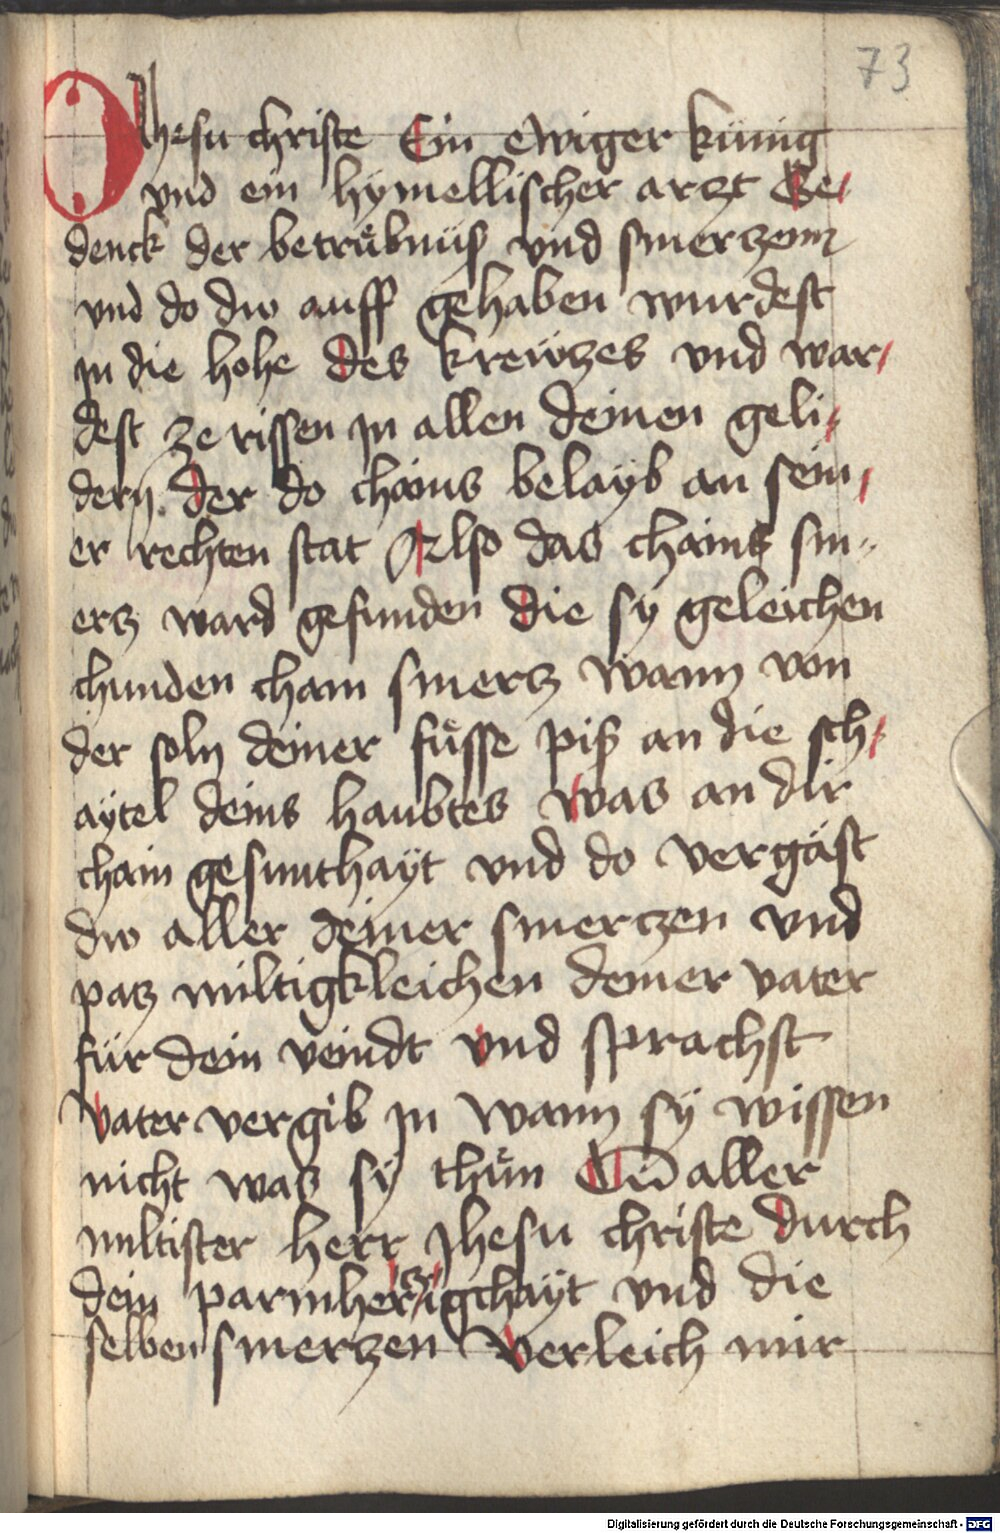 73
O Jhesu christe Ein ewiger künig
vnd ein hymellischer arzt Ge
denck der betrübnüß vnd smerzenn
vnd do dw auff gehaben wurdest
jn die hohe des krewtzes vnd war
dest ze rissen jn allen deinen geli
dern der do chains belayb an sein
er rechten stat Also das chains sm
ertz ward gefunden die sy geleichen
chunden cham smertz wann von
der soln deiner füsse piß an die sch
aytel deins haubtes was an dir
chain gesunthayt vnd do vergäst
dw aller deiner smertzen vnd
patz miltigkleichen deiner vater
für dein veindt vnd sprachst
Vater vergib jn wann sy wissen
nicht was sy thün O aller
miltister herr Jhesu christe durch
dein parmherzigchayt vnd die
selben smerzen verleich mir
Digitalisierung gefördert durch die Deutsche Forschungsgemeinschaft - DFG